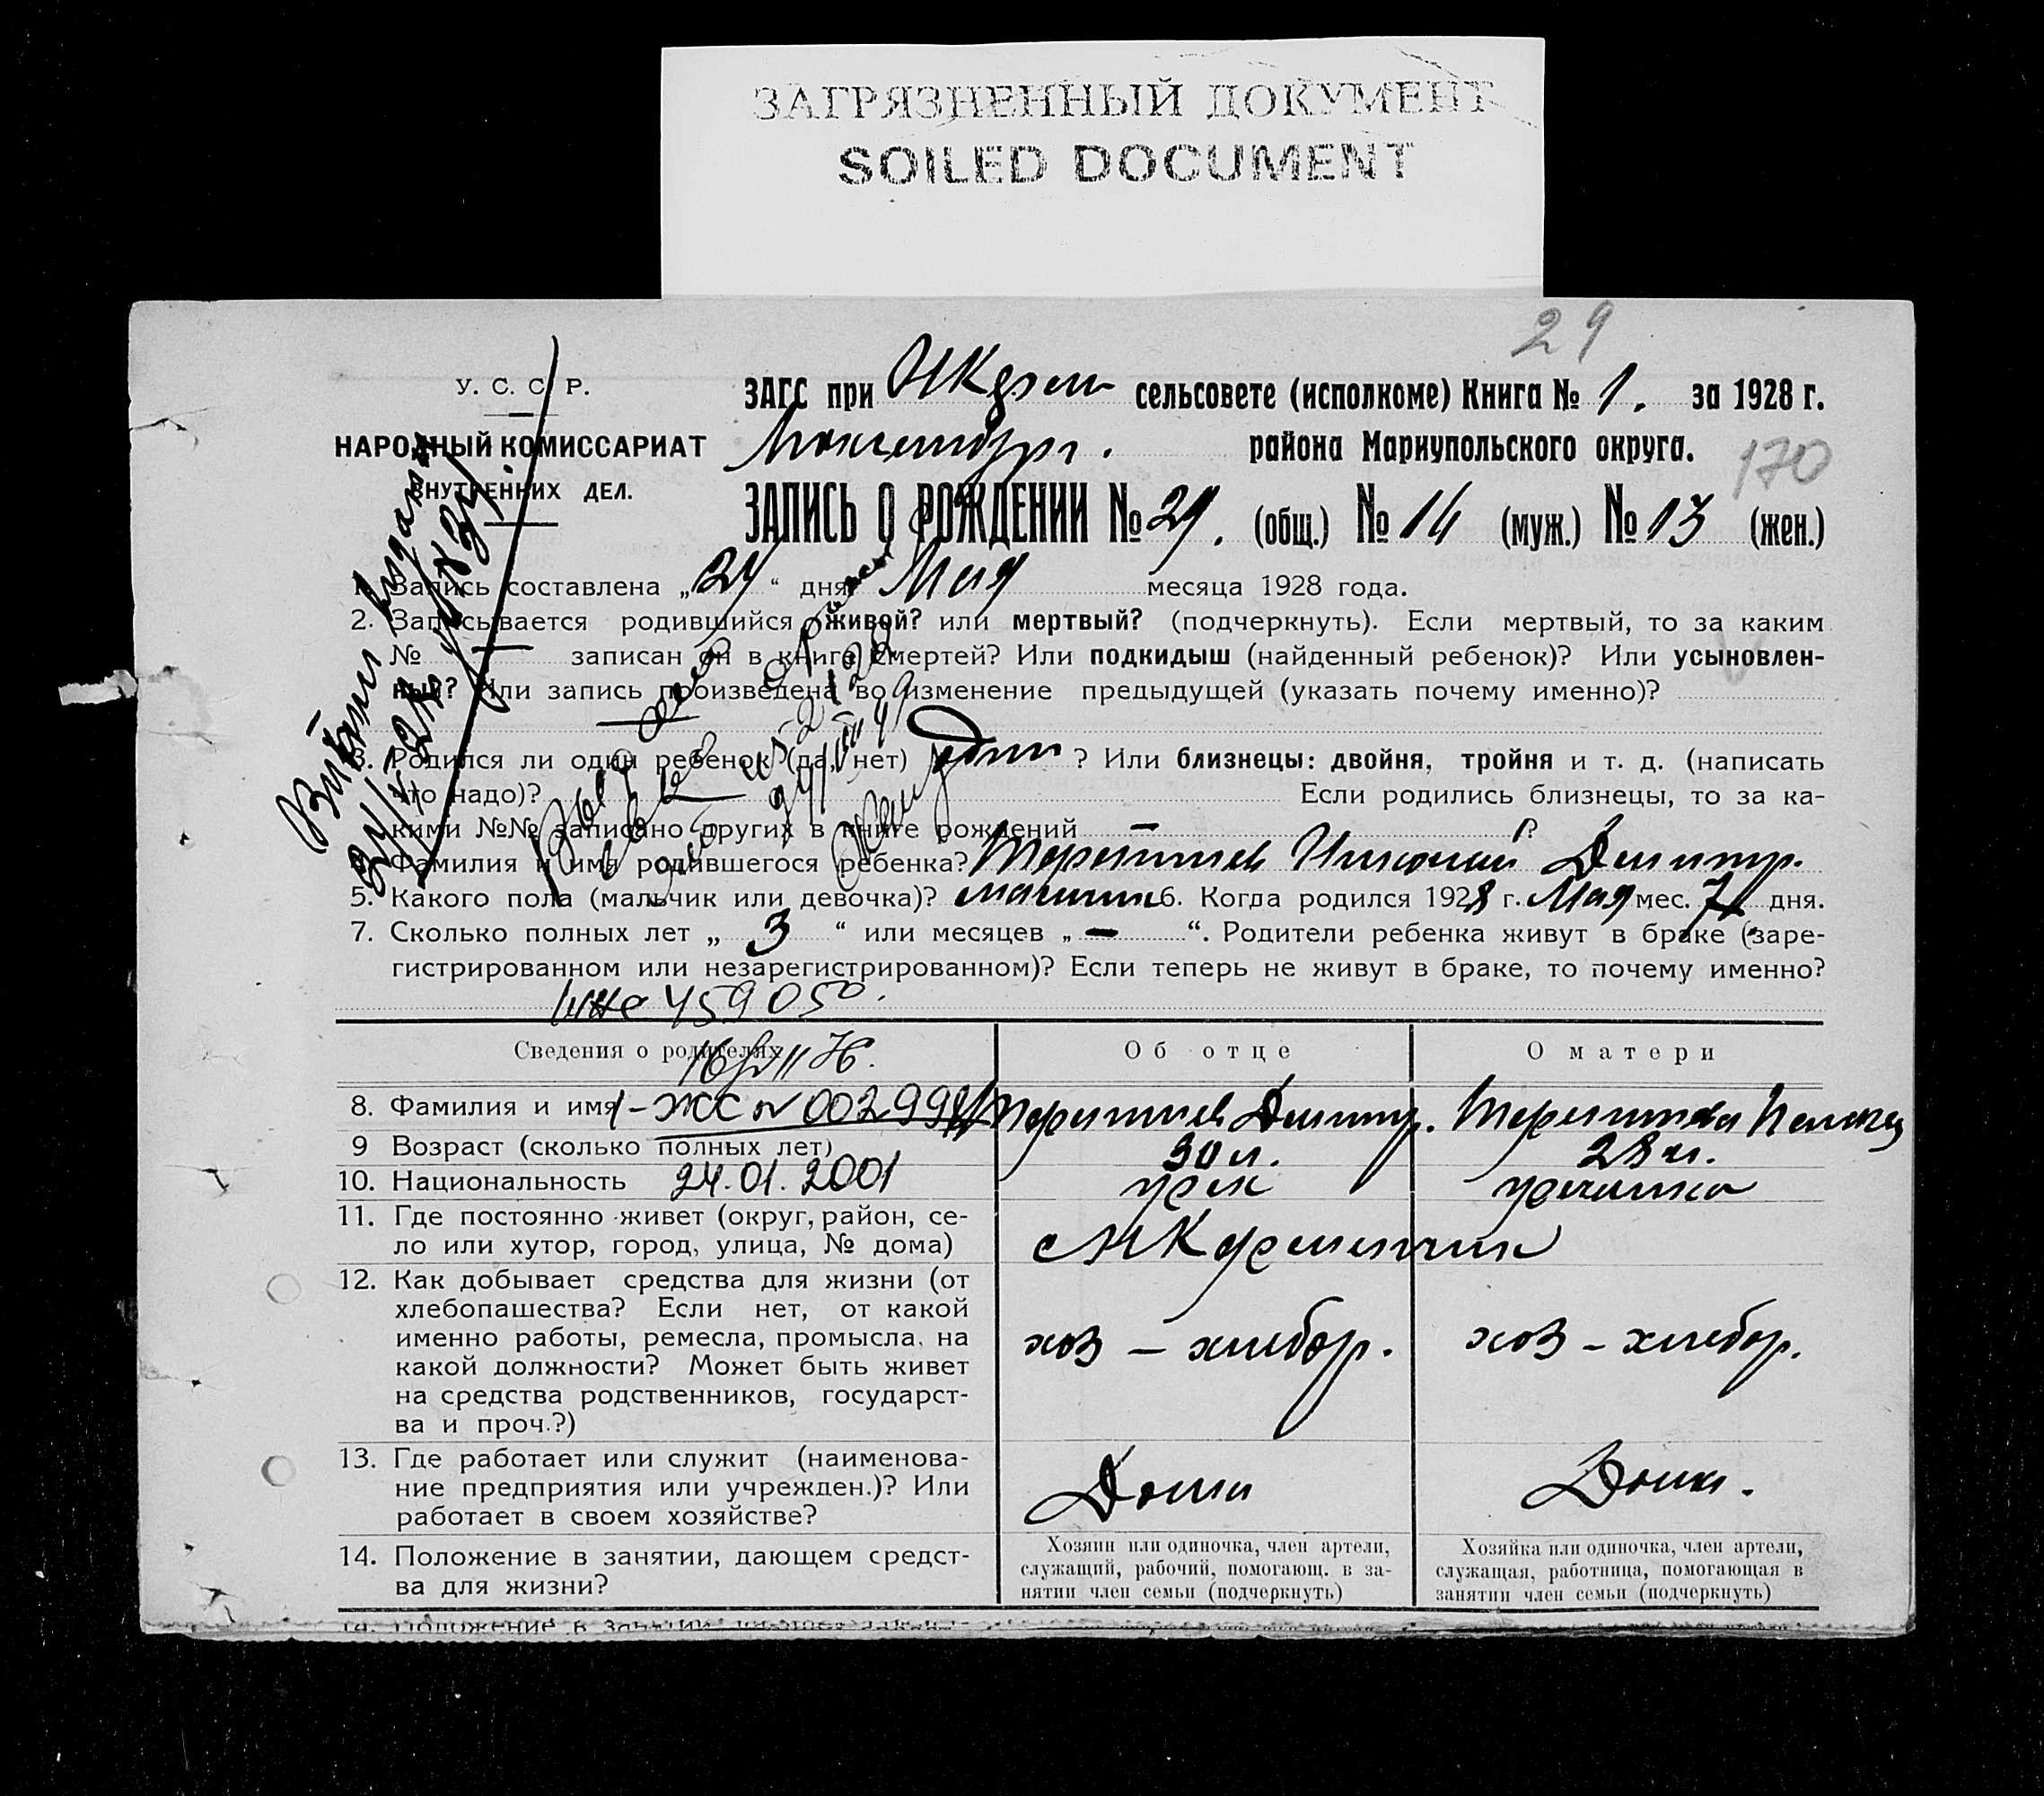 ЗАГРЯЗНЕННЫЙ ДОКУМЕНТ
SOILED DOCUMENT
29
У. С. С. Р.
ЗАГС при сельсовете (исполкоме) Книга № 1. за 1928 г.
НАРОДНЫЙ КОМИССАРИАТ
района Мариупольского округа.
170
ВНУТРЕННИХ ДЕЛ.
ЗАПИСЬ О РОЖДЕНИИ № 29. (общ.) № 14 (муж.) № 13 (жен.)
1. Запись составлена „ “ дня Мая месяца 1928 года.
2. Записывается родившийся живой? или мертвый? (подчеркнуть). Если мертвый, то за каким
№ — записан он в книге смертей? Или подкидыш (найденный ребенок)? Или усыновлен-
ный? Или запись произведена во изменение предыдущей (указать почему именно)?
3. Родился ли один ребенок (да, нет) один ? Или близнецы: двойня, тройня и т. д. (написать
что надо)? Если родились близнецы, то за ка-
кими №№ записано других в книге рождений — ?
4. Фамилия и имя родившегося ребенка? Николай Дмитр.
5. Какого пола (мальчик или девочка)? мальчик 6. Когда родился 1928 г. Мая мес. 7 дня.
7. Сколько полных лет „ 3 “ или месяцев „ — “. Родители ребенка живут в браке (заре-
гистрированном или незарегистрированном)? Если теперь не живут в браке, то почему именно?
459050.
Сведения о родителях
Об отце
О матери
8. Фамилия и имя
1-ЖС № 002999
Дмитр.
9 Возраст (сколько полных лет)
30 л.
28 л.
10. Национальность
24.01.2001
грек
гречанка
11. Где постоянно живет (округ, район, се-
ло или хутор, город, улица, № дома)
12. Как добывает средства для жизни (от
хлебопашества? Если нет, от какой
именно работы, ремесла, промысла, на
какой должности? Может быть живет
на средства родственников, государст-
ва и проч.?)
хоз - хлебор.
хоз - хлебор.
13. Где работает или служит (наименова-
ние предприятия или учрежден.)? Или
работает в своем хозяйстве?
Дома
Дома.
14. Положение в занятии, дающем средст-
ва для жизни?
Хозяин или одиночка, член артели,
служащий, рабочий, помогающ. в за-
нятии член семьи (подчеркнуть)
Хозяйка или одиночка, член артели,
служащая, работница, помогающая в
занятии член семьи (подчеркнуть)